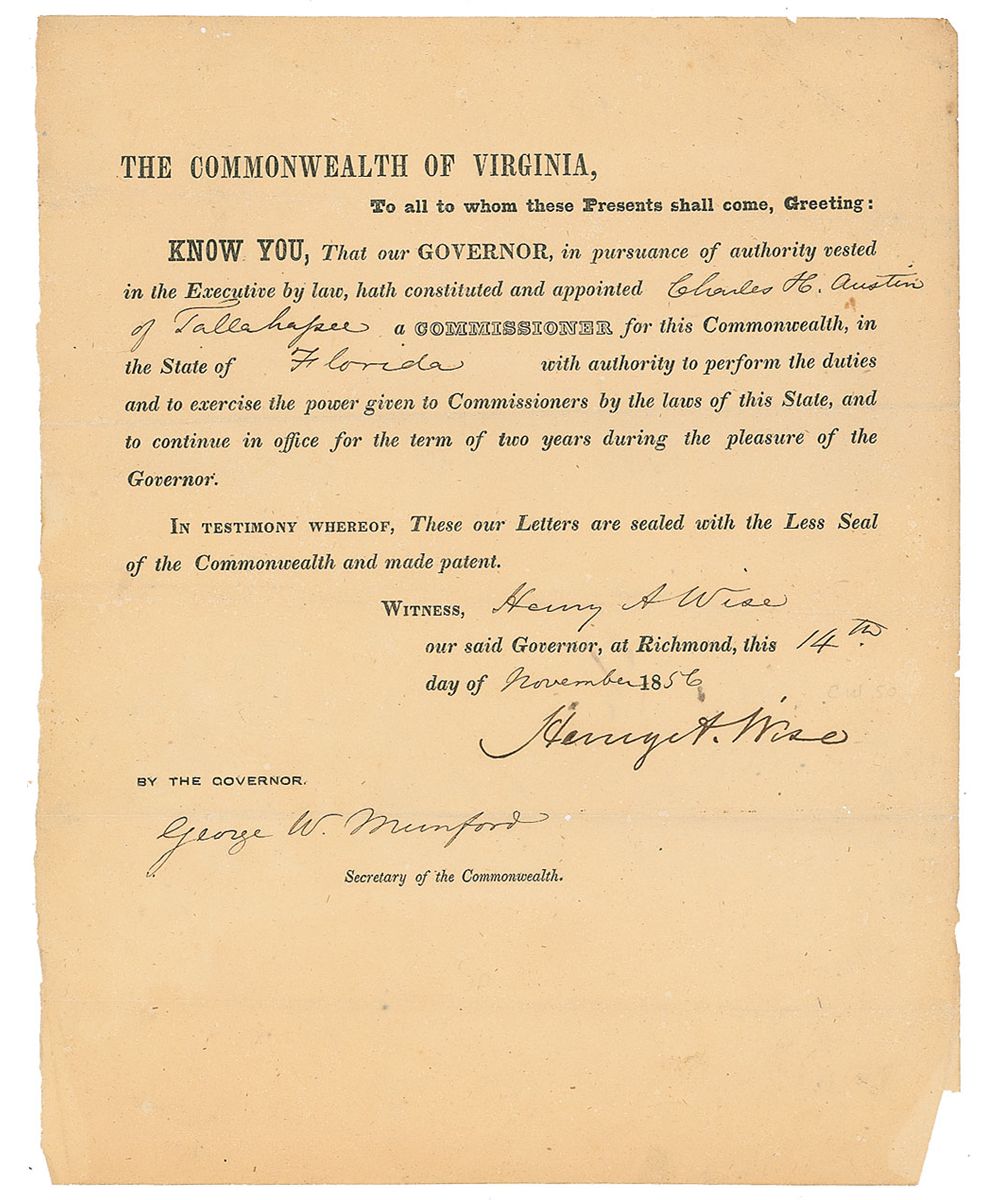 THE COMMONWEALTH OF VIRGINIA,
To all to whom these Presents shall come, Greeting:
KNOW YOU, That our GOVERNOR, in pursuance of authority vested
in the Executive by law, hath constituted and appointed Charles H. Austin
of Tallahassee a COMMISSIONER for this Commonwealth, in
the State of Florida with authority to perform the duties
and to exercise the power given to Commissioners by the laws of this State, and
to continue in office for the term of two years during the pleasure of the
Governor.
IN TESTIMONY WHEREOF, These our Letters are sealed with the Less Seal
of the Commonwealth and made patent.
WITNESS, Henry A Wise
our said Governor, at Richmond, this 14th.
day of November 1856
C W 50
Henry A. Wise
BY THE GOVERNOR.
George W. Munford
Secretary of the Commonwealth.